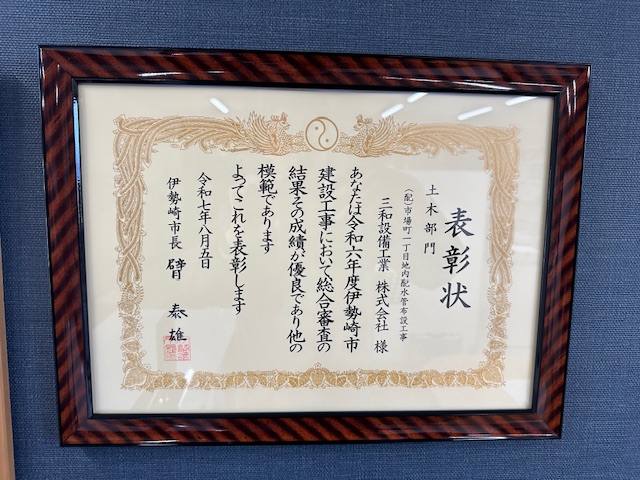 表彰状
土木部門
(配)市場町一丁目地内配水管布設工事
三和設備工業 株式会社 様
あなたは令和六年度伊勢崎市
建設工事において総合審査の
結果その成績が優良であり他の
模範であります
よってこれを表彰します
令和七年八月五日
伊勢崎市長 臂 泰雄